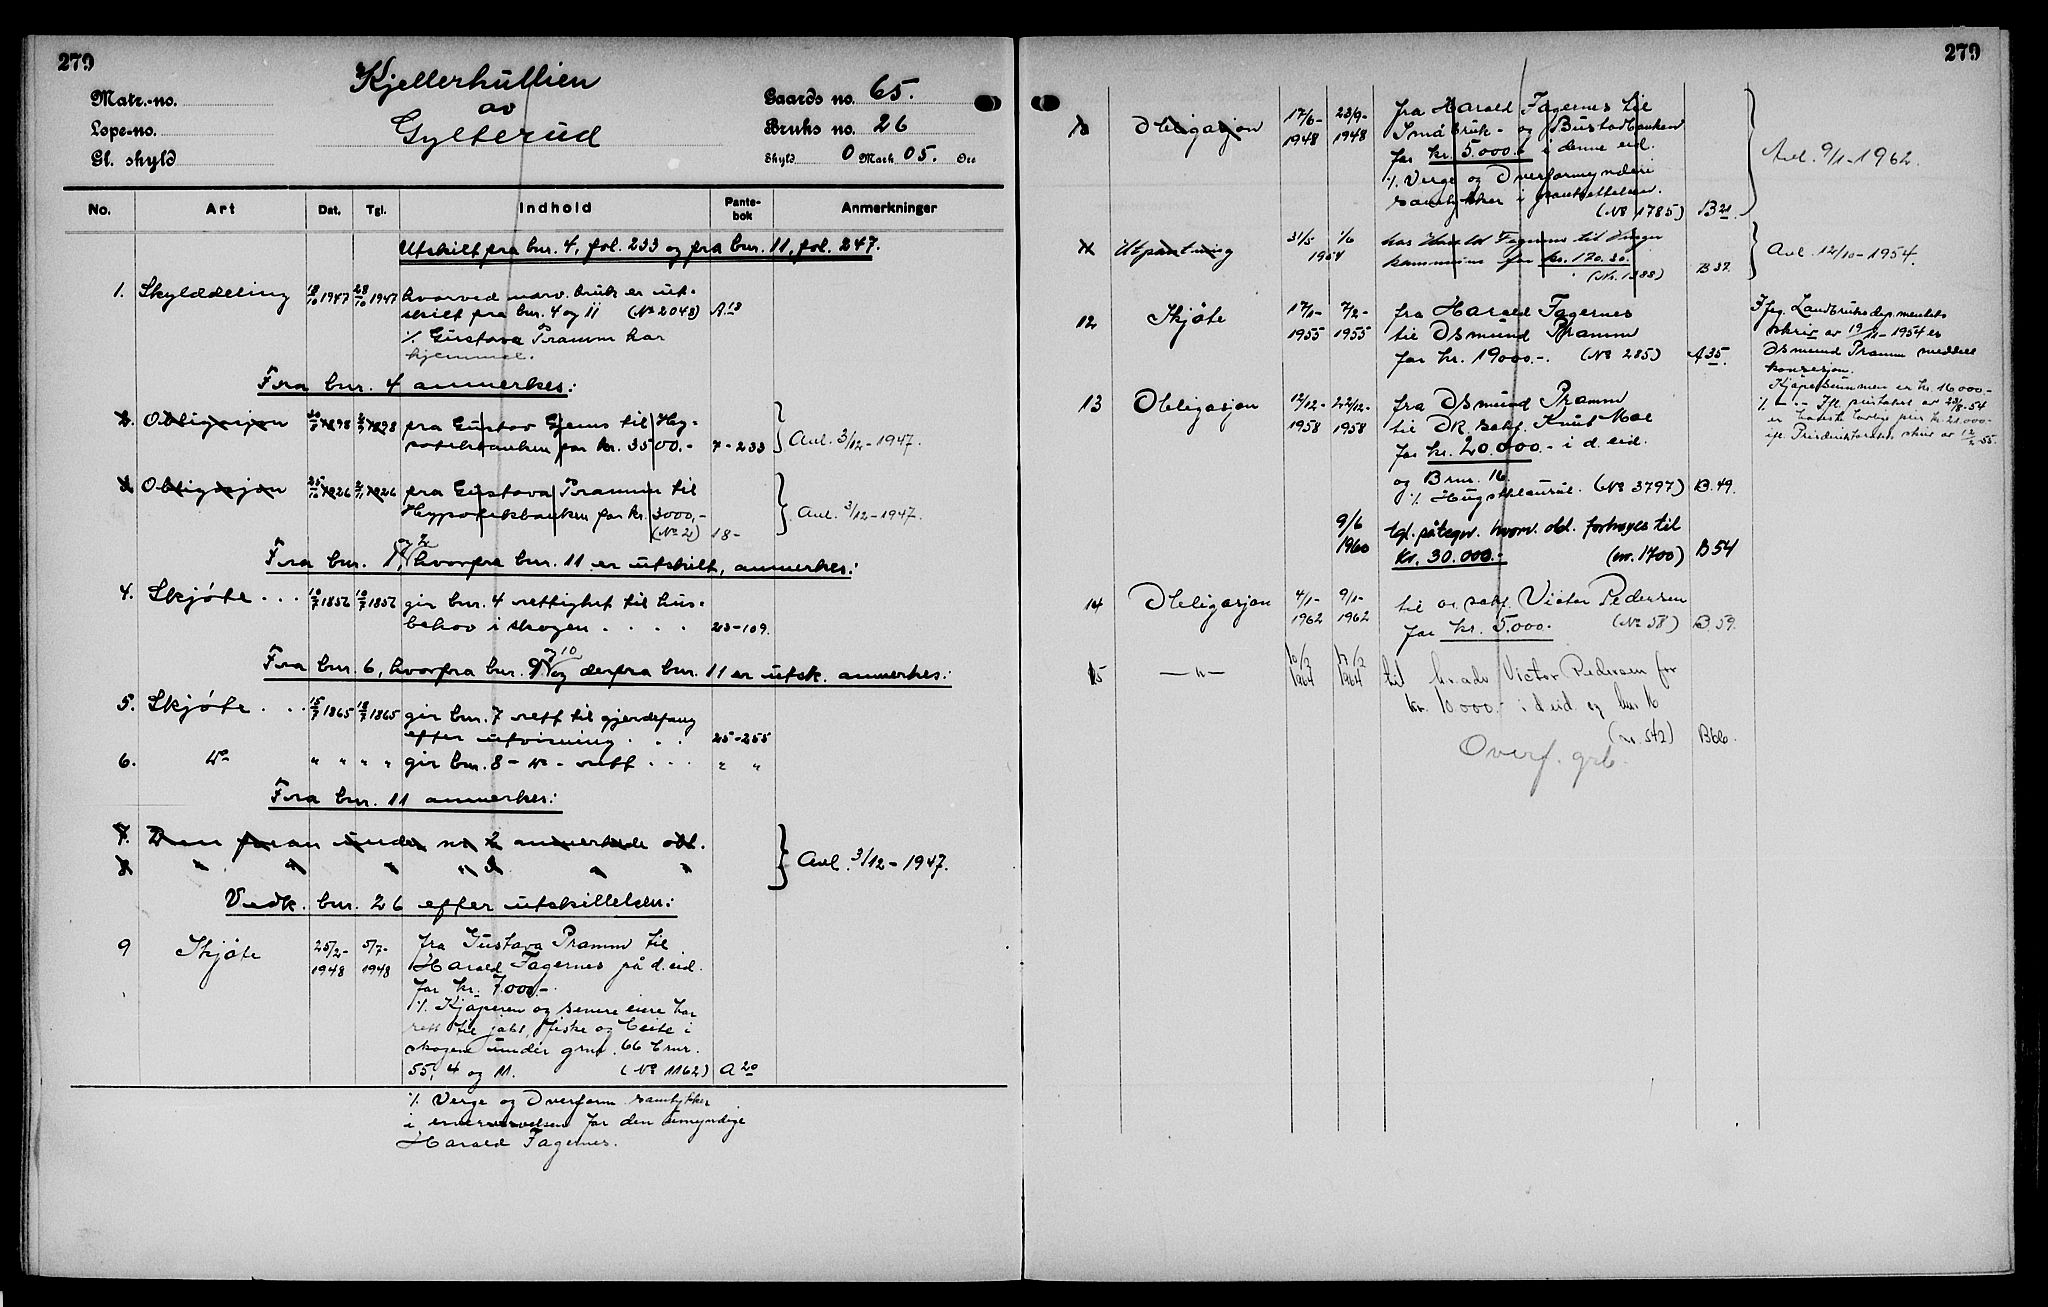 279
Kjellerhullien
av
Gylterud
Matr.-no.
Lope-no.
Gl. skyld
Gaards no. 65.
Bruks no. 26
Skyld 0 Mark 05. Øre
No. Art Dat. Tgl. Indhold Pante-bok Anmerkninger
Utskilt fra bnr. 4, fol. 233 og fra bnr. 11, fol. 247.
1. Skylddeling 18/10 1947 28/10 1947 hvorved nærv. bruk er ut-
skilt fra bnr. 4 og 11 (No 2048) A 18
./. Gustava Pramm har
hjemmel.
Fra bnr. 4 anmerkes:
2. Obligasjon 1898 1898 fra Gustav Gjems til Hy-
potekbanken for kr. 3500.- 7-233 Avl. 3/12-1947.
3. Obligasjon 1926 1926 fra Gustava Pramm til
Hypotekbanken for kr. 3000,-
(No 2) 18- Avl. 3/12-1947.
Fra bnr. 1, og 2 hvorfra bnr. 11 er utskilt, anmerkes:
4. Skjøte . . . 10/7 1856 10/7 1856 gir bnr. 4 rettighet til hus-
behov i skogen . . . . 23-109.
Fra bnr. 6, hvorfra bnr. 9 og 10 og derfra bnr. 11 er utsk. anmerkes:
5. Skjøte . . 15/7 1865 18/7 1865 gir bnr. 7 rett til gjerdefang
efter utvisning . . . 25-255
6. Do " " " " gir bnr. 8 - do - rett . . . " "
Fra bnr. 11 anmerkes:
7. Den foran under no 2 anmerkede obl.
8 " " " " 3 " " Avl. 3/12-1947.
Vedk. bnr. 26 efter utskillelsen:
9 Skjøte 25/2- 5/7- fra Gustava Pramm til
1948 1948 Harald Fagernes på d. eid.
for kr. 7.000.-
./. Kjøperen og senere eiere har
rett til jakt, fiske og beite i
skogene under grnr. 66 brnr.
55, 4 og 11. (No 1162) A 20
./. Verge og Overform. samtykker
i ervervelsen for den umyndige
Harald Fagernes.
279
10 Obligasjon 17/6- 23/9- fra Harald Fagernes til
1948 1948 Småbruk- og Bustadbanken
for kr. 5.000.- i denne eid.
./. Verge og Overformynderi
samtykker i pantsettelsen.
(No 1785) B 21. Avl. 9/1-1962.
11 Utpantning 31/5 1/6 hos Harald Fagernes til Vinger
1954 kommune for kr. 170.30.
(Nr. 1388) B 37. Avl. 12/10-1954.
12 Skjøte 17/1- 7/2- fra Harald Fagernes
1955 1955 til Osmund Pramm
for kr. 19000.-. (No 285) A 35.
Ifg. Landbruksdep.mentets
skriv av 19/11-1954 er
Osmund Pramm meddelt
konsesjon.
Kjøpesummen er kr. 16000.-
./. - " - Ifl. pristakst av 23/8-54
er høieste lovlige pris kr. 21.000.-
ifl. Prisdirektoratets skriv av 12/2-55.
13 Obligasjon 12/12- 22/12- fra Osmund Pramm
1958 1958 til OR. sakf. Knut Moe
for kr. 20.000.- i d. eid.
og Brnr. 16.
./. Hugstklausul. (No 3797) B. 49.
9/6 tgl. påtegn. hvorv. obl. forhøyes til
1960 kr. 30.000.- (nr. 1700) B 54
14 Obligasjon 4/1- 9/1- til or. sakf. Victor Pedersen
1962 1962 for kr. 5.000.- (No 58) B. 59.
15 - " - 10/2 17/2 til h.r.adv Victor Pedersen for
1964 1964 kr. 10000.- i d. eid. og bnr 16
(nr. 542) B66.
Overf. grb.